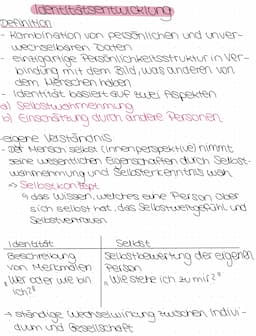 Identitätsentwicklung
Definition
- Kombination von persönlichen und unver-
wechselbaren Daten
- einzigartige Persönlichkeitsstruktur in Ver-
bindung mit dem Bild, was anderen von
dem Menschen haben
- Identität basiert auf zwei Aspekten
a) Selbstwahrnehmung
b) Einschätzung durch andere Personen
eigene Verständnis
- Der Mensch selbst (Innenperspektive) nimmt
seine wesentlichen Eigenschaften durch Selbst-
wahrnehmung und Selbsterkenntnis wahr
-> Selbstkonzept
↳ das Wissen, welches eine Person über
sich selbst hat, das Selbstwertgefühl und
Selbstvertrauen
Identität | Selbst
Beschreibung | Selbstbewertung der eigenen
von Merkmalen | Person
"Wer oder wie bin | "Wie stehe ich zu mir?"
ich?"
→ ständige Wechselwirkung zwischen Indivi-
duum und Gesellschaft